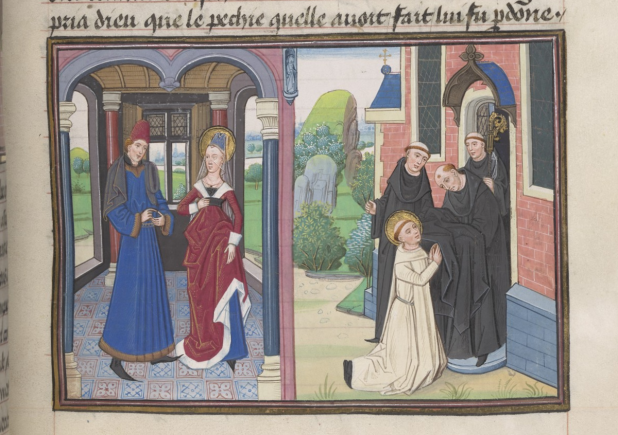 pria dieu que le pechie quelle auoit fait lui fu pdone.